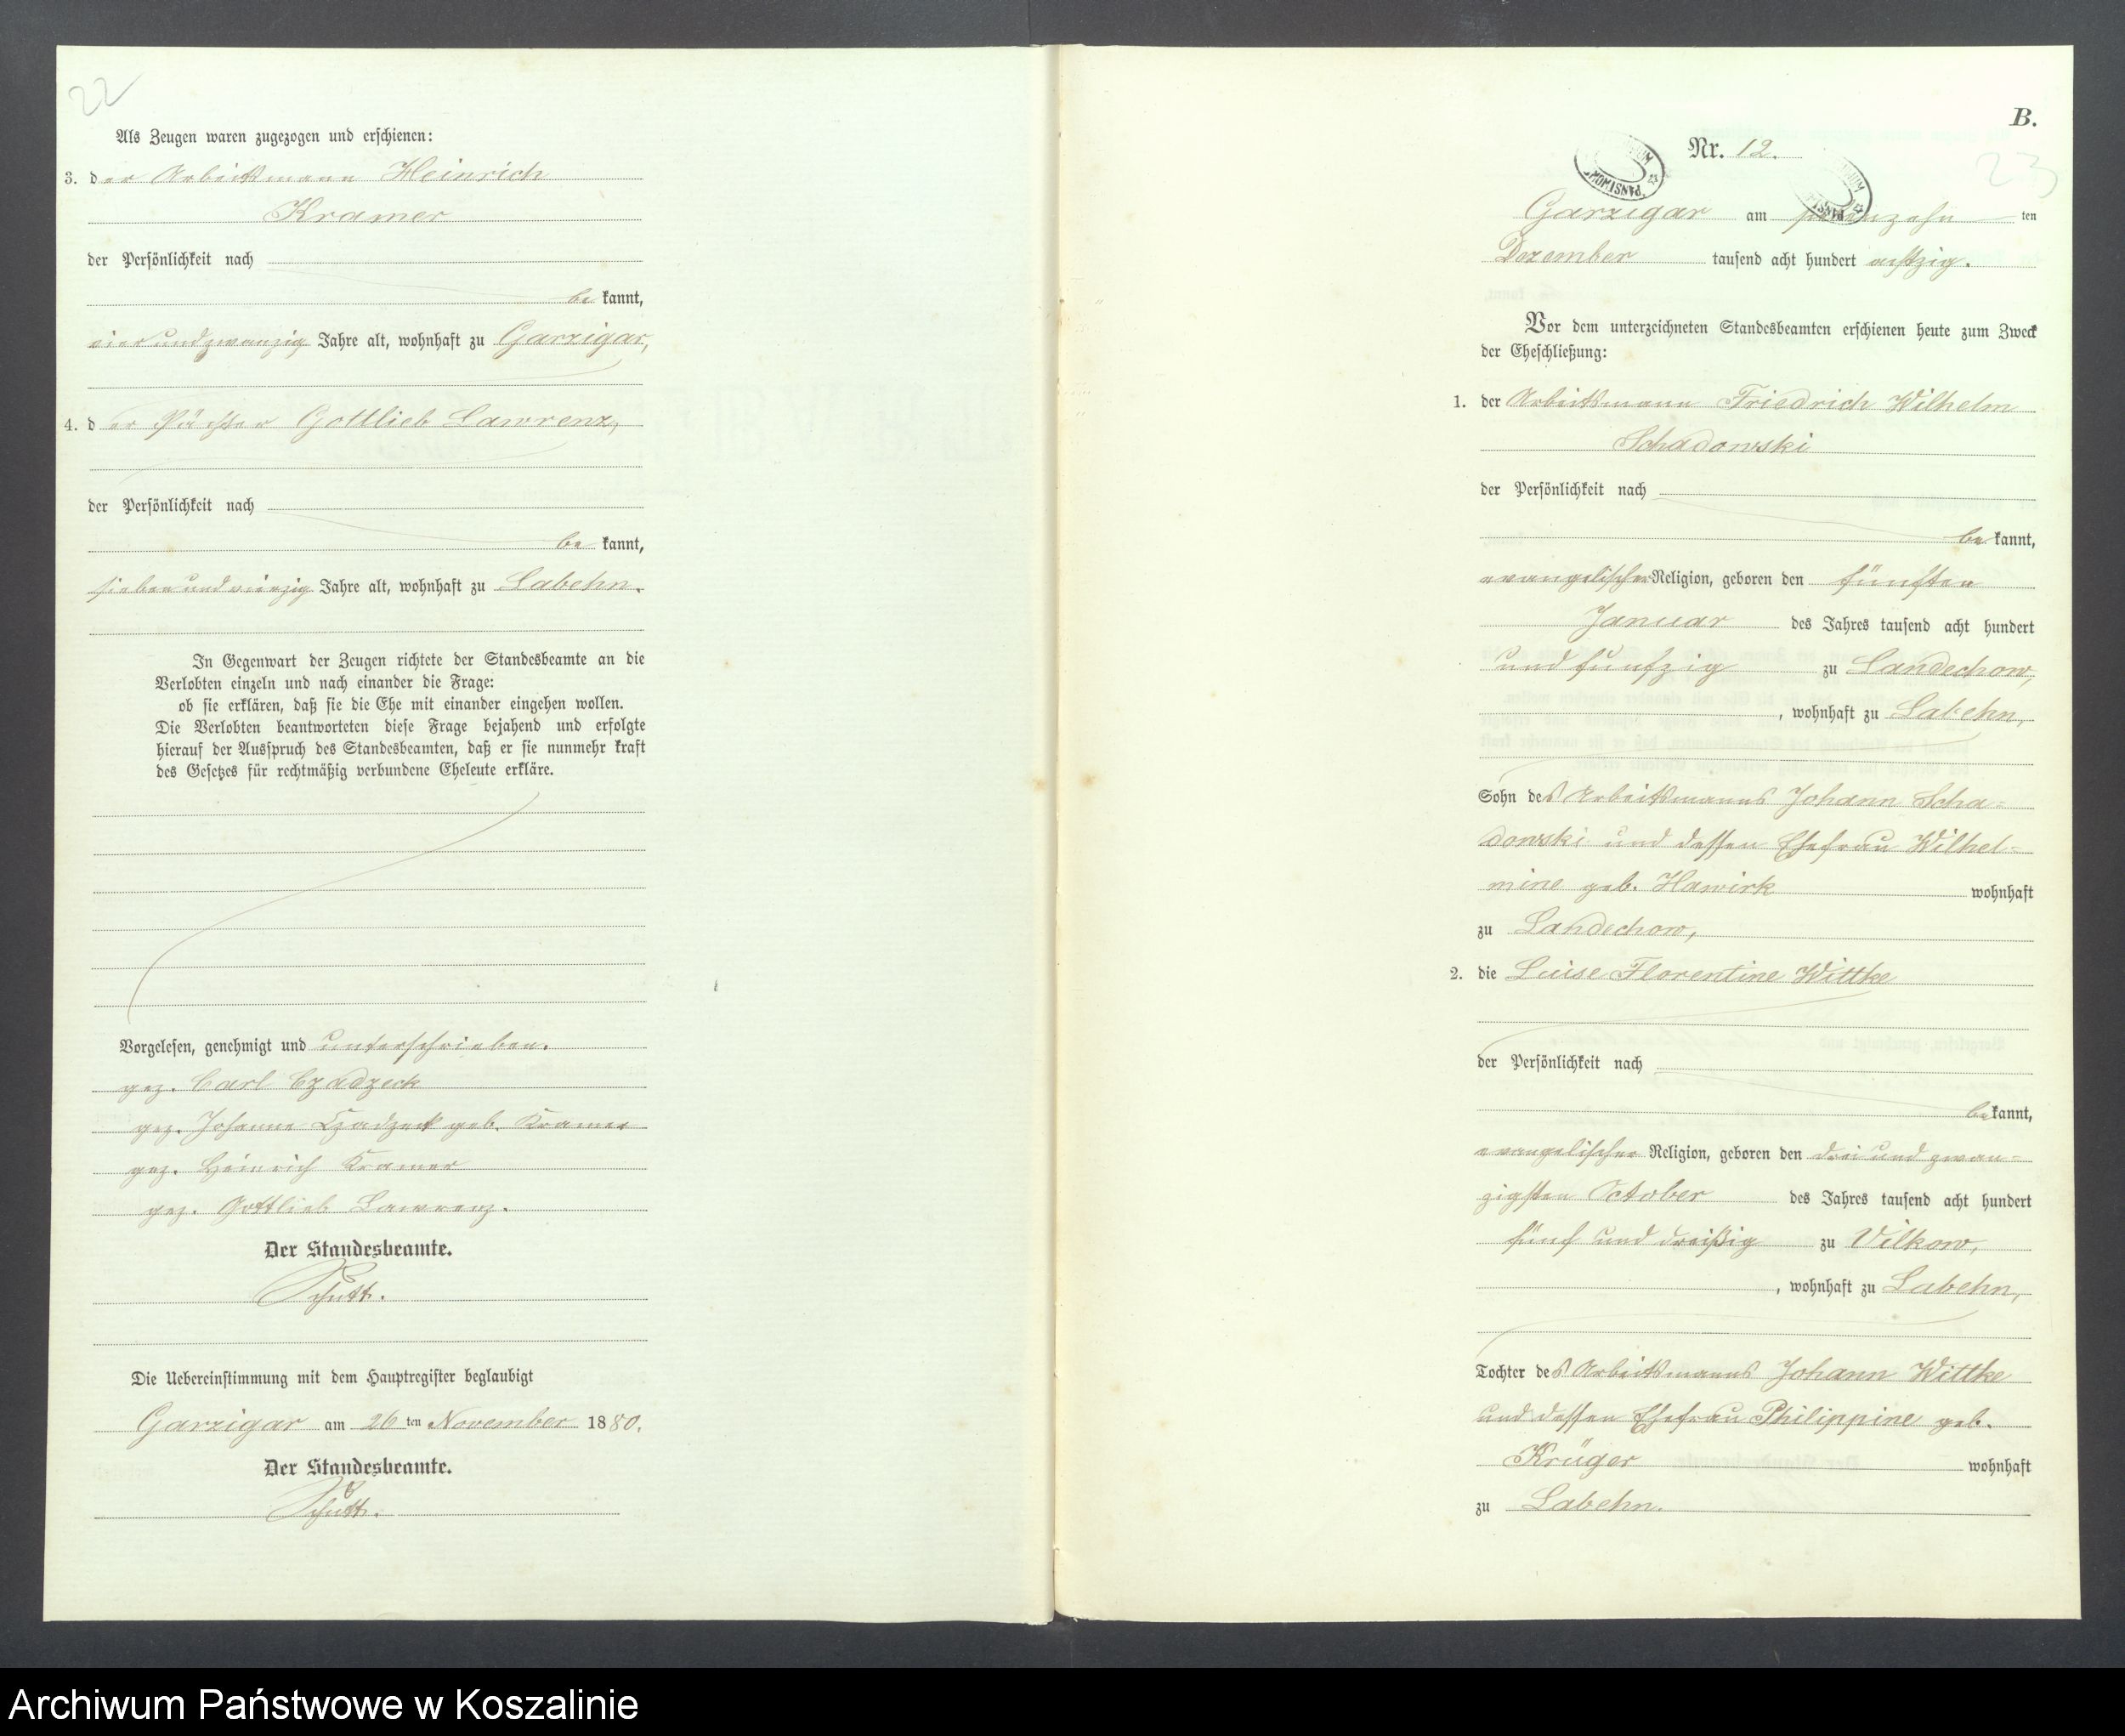 22
Als Zeugen waren zugezogen und erschienen:
3. der Arbeitsmann Heinrich
Kramer
der Persönlichkeit nach
be kannt,
vier und zwanzig Jahre alt, wohnhaft zu Garzigar,
4. der Pächter Gottlieb Lawrenz,
der Persönlichkeit nach
be kannt,
sieben und vierzig Jahre alt, wohnhaft zu Labehn.
In Gegenwart der Zeugen richtete der Standesbeamte an die
Verlobten einzeln und nach einander die Frage:
ob sie erklären, daß sie die Ehe mit einander eingehen wollen.
Die Verlobten beantworteten diese Frage bejahend und erfolgte
hierauf der Ausspruch des Standesbeamten, daß er sie nunmehr kraft
des Gesetzes für rechtmäßig verbundene Eheleute erkläre.
Vorgelesen, genehmigt und unterschrieben.
gez. Carl Czadzeck
gez. Johanne Czadzeck geb. Kramer
gez. Heinrich Kramer
gez. Gottlieb Lawrenz.
Der Standesbeamte.
Schütt.
Die Uebereinstimmung mit dem Hauptregister beglaubigt
Garzigar am 26 ten November 1880.
Der Standesbeamte.
Schütt.
B.
Nr. 12.
23
Garzigar am ten
Dezember tausend acht hundert achtzig.
Vor dem unterzeichneten Standesbeamten erschienen heute zum Zweck
der Eheschließung:
1. der Arbeitsmann Friedrich Wilhelm
Schadowski
der Persönlichkeit nach
be kannt,
evangelischer Religion, geboren den fünften
Januar des Jahres tausend acht hundert
und fünfzig zu Landechow,
, wohnhaft zu Labehn,
Sohn des Arbeitsmanns Johann Scha=
dowski und dessen Ehefrau Wilhel=
mine geb. Hawirk wohnhaft
zu Landechow,
2. die Luise Florentine Wittke
der Persönlichkeit nach
be kannt,
evangelischer Religion, geboren den drei und zwan=
zigsten October des Jahres tausend acht hundert
fünf und dreißig zu Vilkow,
, wohnhaft zu Labehn,
Tochter des Arbeitsmanns Johann Wittke
und dessen Ehefrau Philippine geb.
Krüger wohnhaft
zu Labehn.
Archiwum Państwowe w Koszalinie